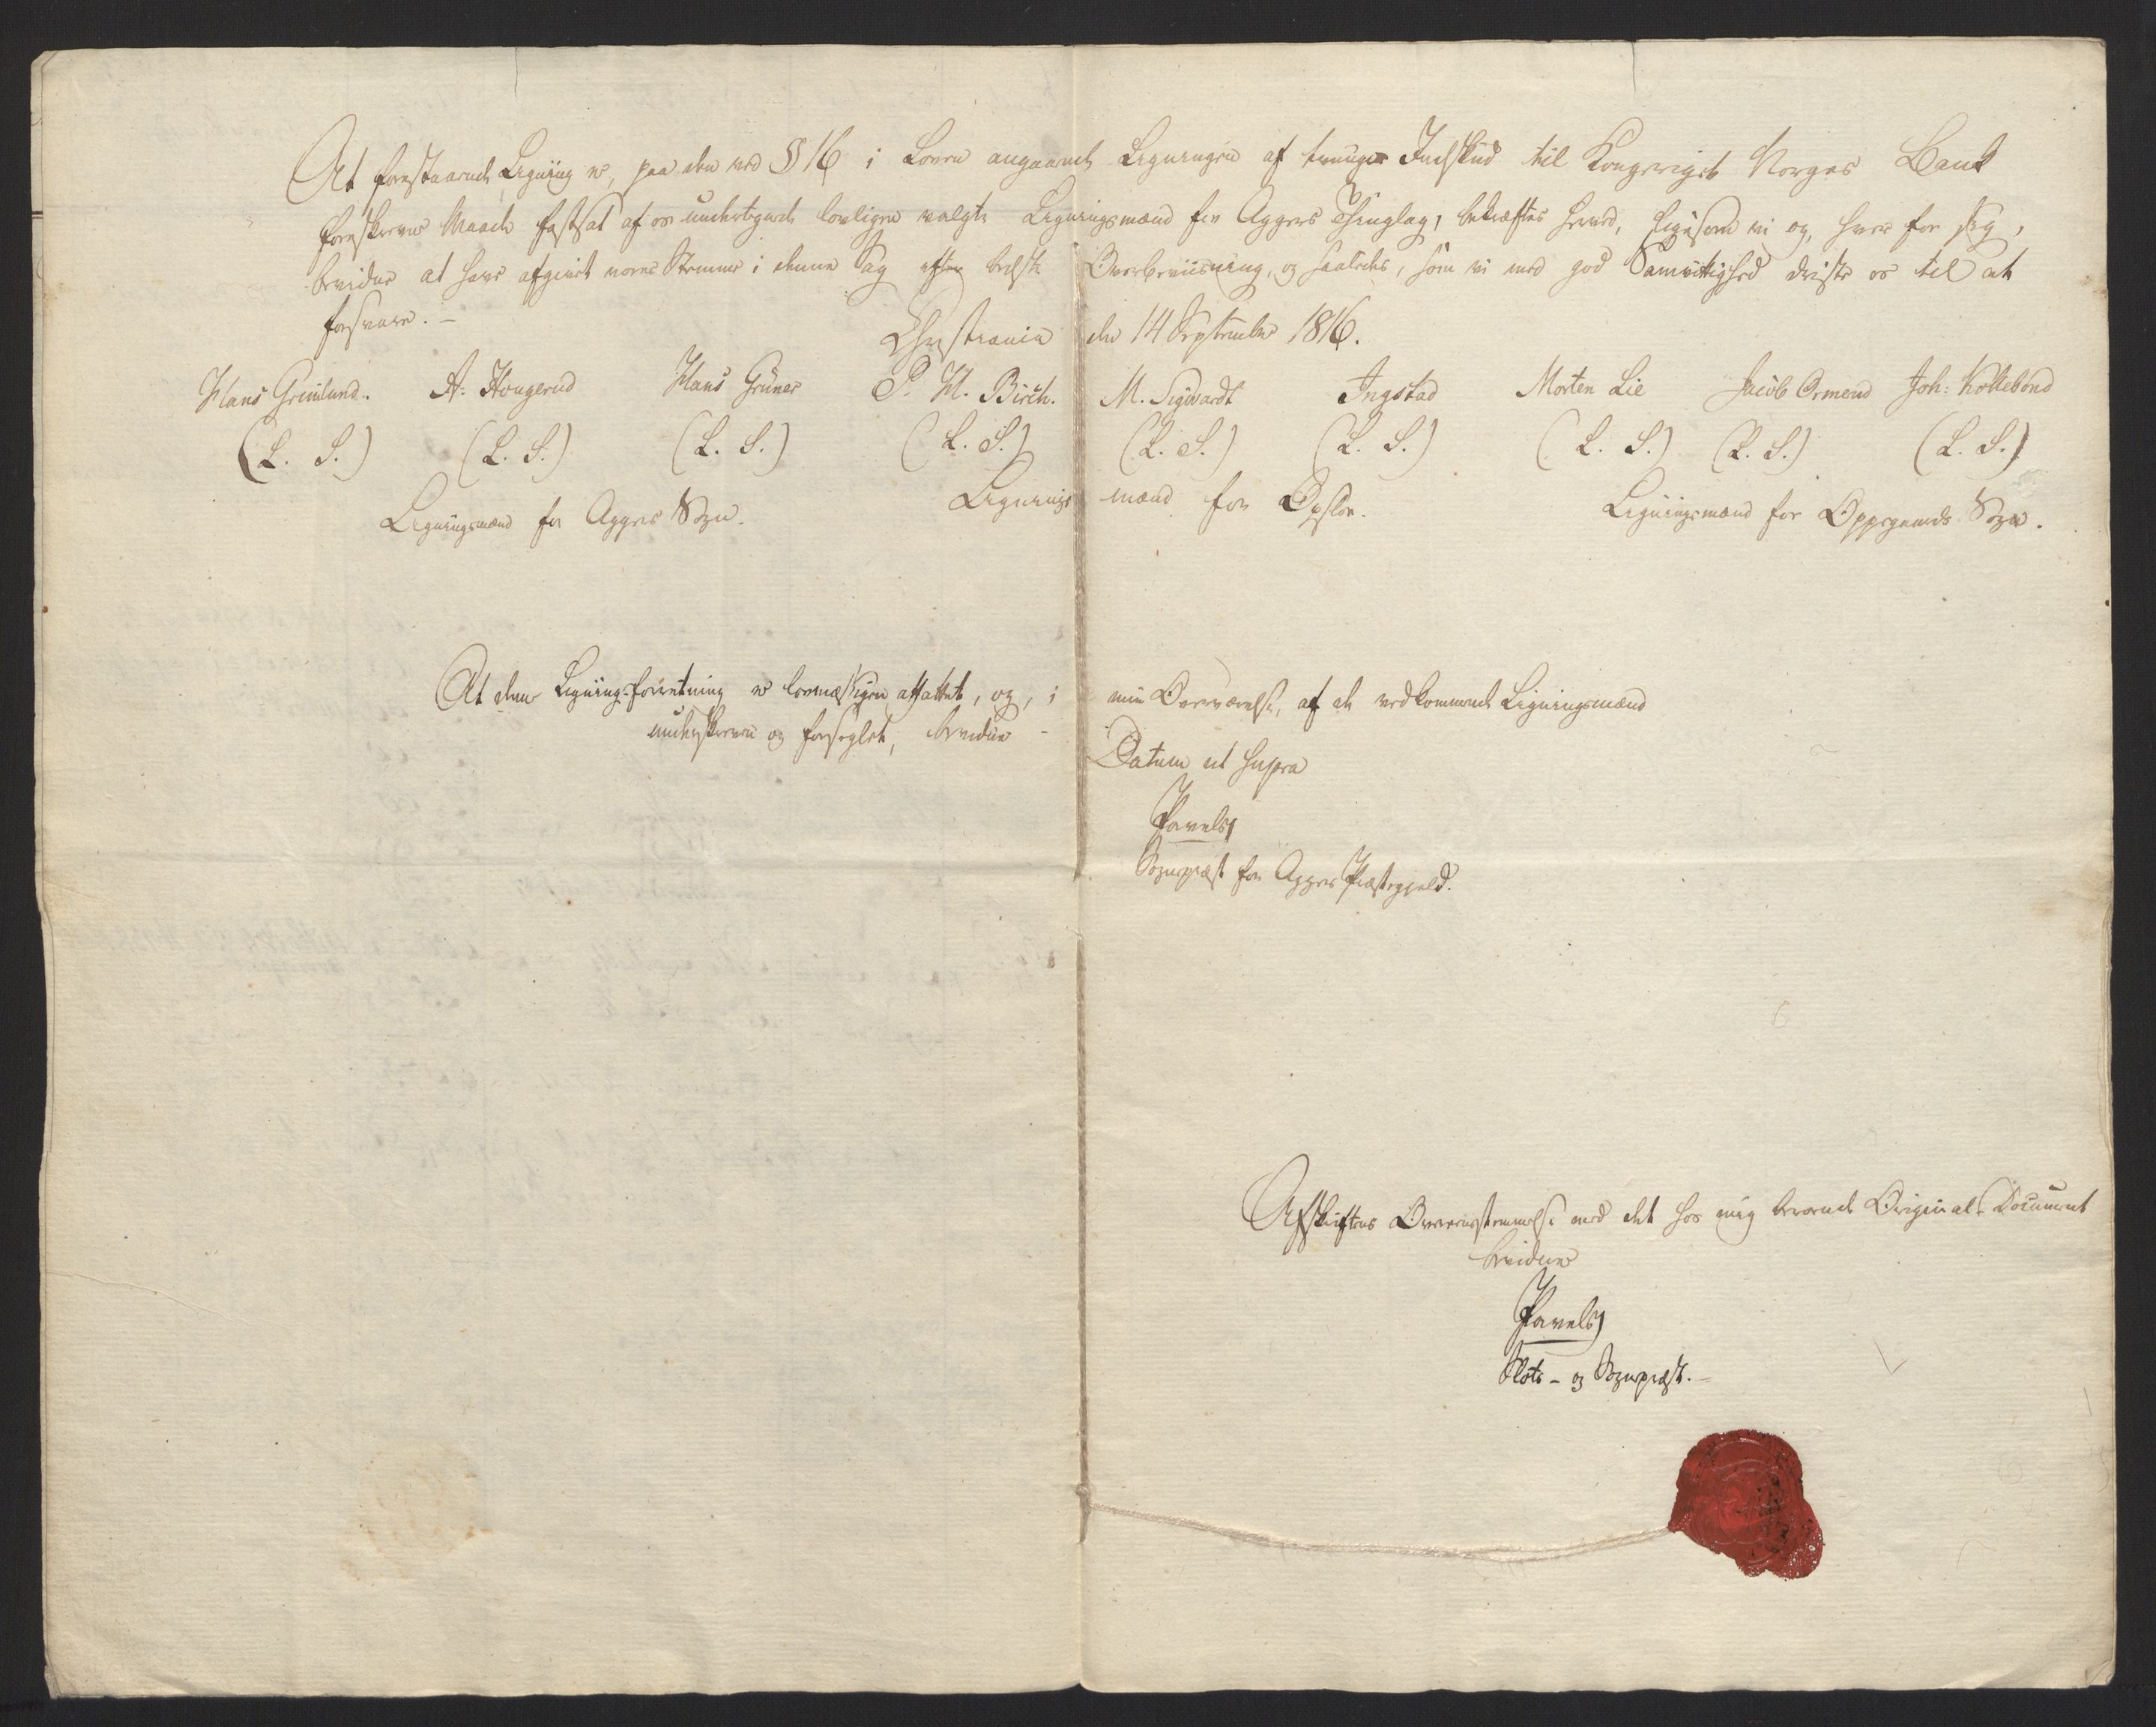 At forestaaende Ligning er, paa den ved § 16 i Loven angaaende Ligningen af tvungne Indskud til Kongeriget Norges Bank
foreskrevne Maade fastsat af os undertegnede lovligen valgte Ligningsmænd for Aggers Thinglag, bekræftes herved, ligesom vi og, hver for sig,
bevidne at have afgivet vores Stemme i denne Sag efter bedste Overbeviisning, og saaledes, som vi med god Samvittighed driste os til at
forsvare. –
Christiania den 14 September 1816.
Hans Grimlund. A: Hougerud Hans Grüner P. H. Birch. M. Sigvardt Ingstad Morten Lie Jacob Ormerud Joh: Kollebond
(L. S.) (L. S.) (L. S.) (L. S.) (L. S.) (L. S.) (L. S.) (L. S.) (L. S.)
Ligningsmænd for Aggers Sogn. Ligningsmænd for Opsloe. Ligningsmænd for Oppegaards Sogn.
At denne Ligningsforretning er lovmæssigen affattet, og, i min Overværelse, af de vedkommende Ligningsmænd
underskreven og forseglet, bevidner –
Datum ut supra
Pavels
Sognepræst for Aggers Præstegjeld.
Afskriftens Overeensstemmelse med det hos mig beroende Original-Document
bevidner
Pavels
Slots- og Sognepræst. –